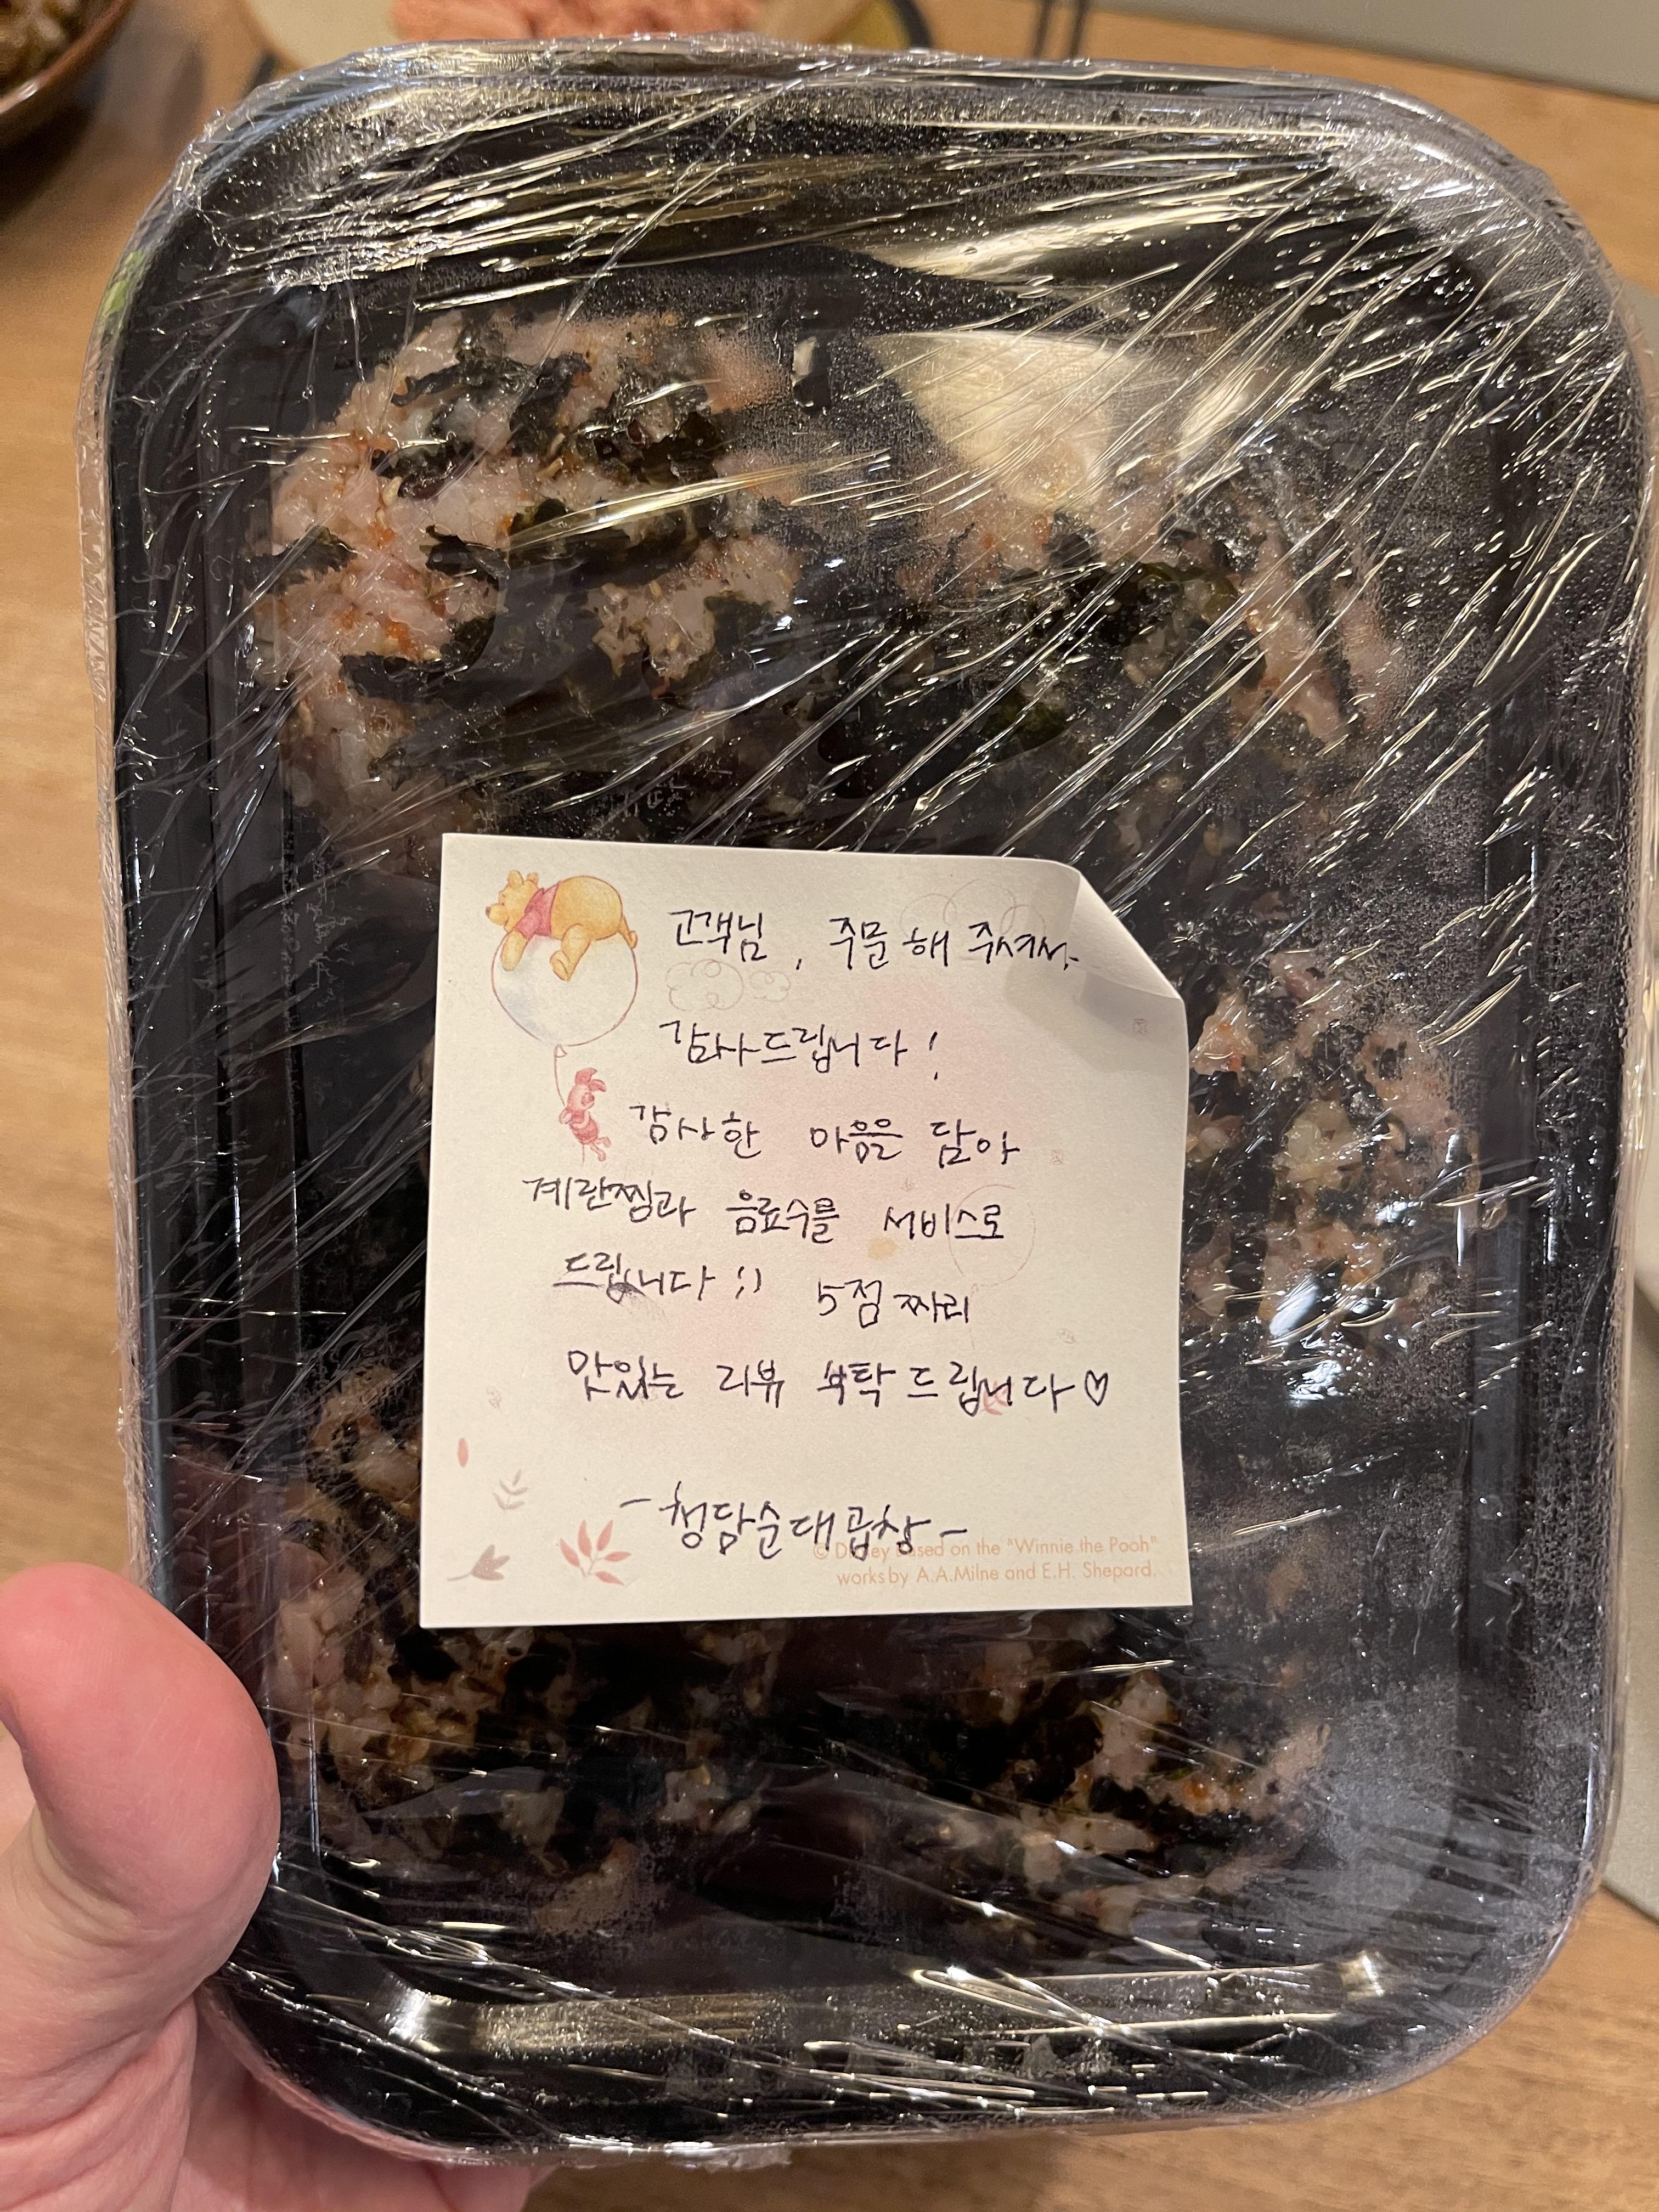 고객님, 주문해 주셔서
감사드립니다!
감사한 마음을 담아
계란찜과 음료수를 서비스로
드립니다 :) 5점 짜리
맛있는 리뷰 부탁드립니다♡
-청담순대곱창-
© Disney Based on the "Winnie the Pooh"
works by A.A.Milne and E.H. Shepard.